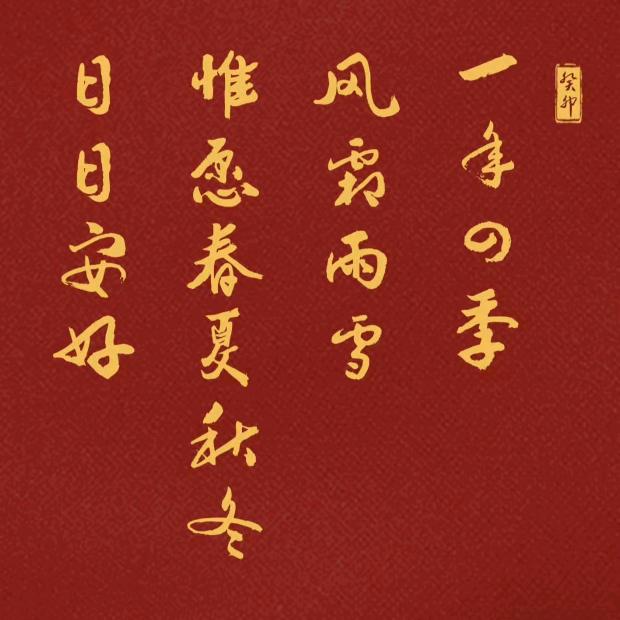 癸卯
一年四季
风霜雨雪
惟愿春夏秋冬
日日安好